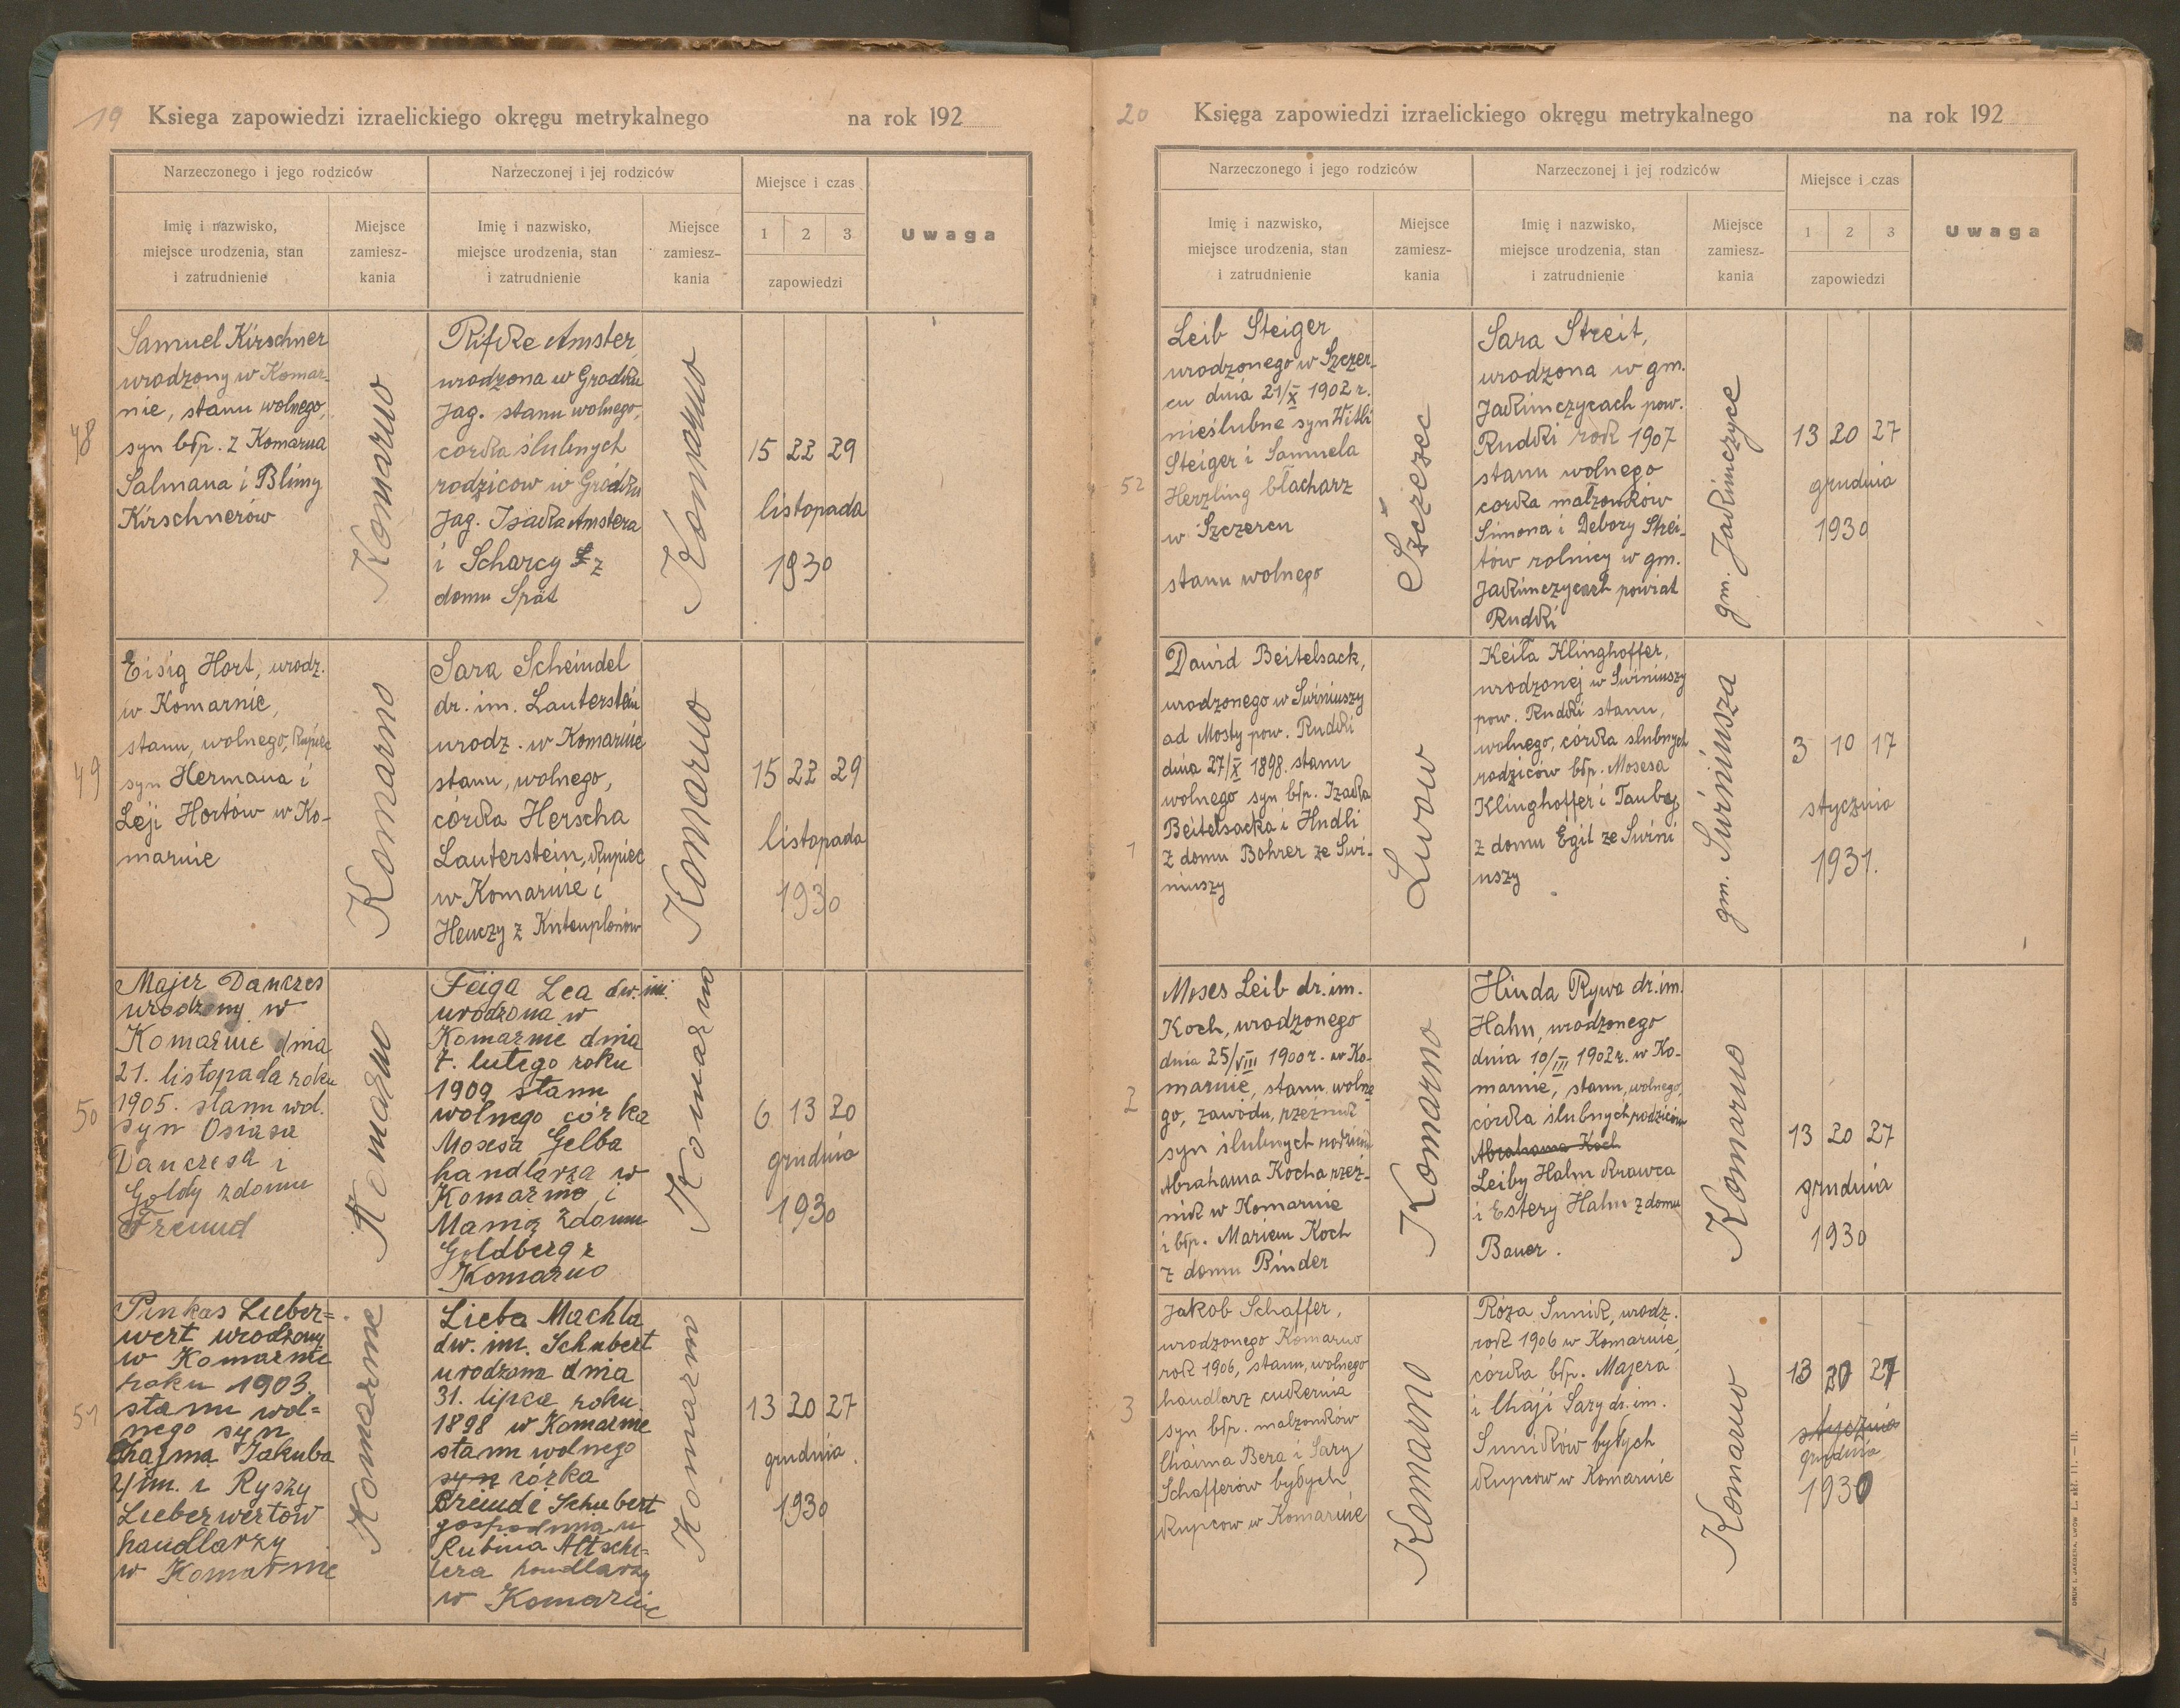 19
Księga zapowiedzi izraelickiego okręgu metrykalnego na rok 192
Narzeczonego i jego rodziców
Narzeczonej i jej rodziców
Miejsce i czas
Uwaga
Imię i nazwisko,
miejsce urodzenia, stan
i zatrudnienie
Miejsce
zamiesz-
kania
Imię i nazwisko,
miejsce urodzenia, stan
i zatrudnienie
Miejsce
zamiesz-
kania
1 2 3
zapowiedzi
48
Samuel Kirschner
urodzony w Komar-
nie, stanu wolnego,
syn błp. z Komarna
Salmana i Blimy
Kirschnerów
Komarno
Rifke Amster
urodzona w Gródku
Jag. stanu wolnego,
corka slubnych
rodzicow w Gródku
Jag. Isaka Amstera
i Scharcy z
domu Spät
Komarno
15 22 29
listopada
1930
49
Eisig Hort, urodz.
w Komarnie,
stanu, wolnego, kupiec
syn Hermana i
Leji Hortów w Ko-
marnie
Komarno
Sara Scheindel
dr. im. Lauterstein
urodz. w Komarnie
stanu, wolnego,
córka Herscha
Lauterstein, kupiec
w Komarnie i
Henczy z
Komarno
15 22 29
listopada
1930
50
Majer Danczes
urodzony w
Komarnie dnia
21. listopada roku
1905. stanu wol.
syn Osiasa
Danczesa i
Goldy zdomu
Freund
Komarno
Feiga Lea dw. im.
urodzona w
Komarnie dnia
7. lutego roku
1909 stanu
wolnego córka
Mosesa Gelba
handlarza w
Komarnie i
Mania zdomu
Goldberg z
Komarno
Komarno
6 13 20
grudnia
1930
51
Pinkas Lieber=
wert urodzony
w Komarnie
roku 1903.
stanu wol=
nego syn
Chajma Jakuba
2/im. i Ryszy
Lieberwertów
handlarzy
w Komarnie
Komarnie
Lieba Machla
dw. im. Schubert
urodzona dnia
31. lipca roku
1898 w Komarnie
stanu wolnego
syn córka
Breinde Schubert
gospodynia u
Rubina Altschü=
lera handlarzy
w Komarnie
Komarno
13 20 27
grudnia.
1930
20
Księga zapowiedzi izraelickiego okręgu metrykalnego na rok 192
Narzeczonego i jego rodziców
Narzeczonej i jej rodziców
Miejsce i czas
Uwaga
Imię i nazwisko,
miejsce urodzenia, stan
i zatrudnienie
Miejsce
zamiesz-
kania
Imię i nazwisko,
miejsce urodzenia, stan
i zatrudnienie
Miejsce
zamiesz-
kania
1 2 3
zapowiedzi
52
Leib Steiger
urodzonego w Szczer-
cu dnia 21/X 1902 r.
nieślubne syn Witli
Steiger i Samuela
Herzling błacharz
w Szczercu
stanu wolnego
Szczerec
Sara Streit,
urodzona w gm.
Jakimczycach pow.
Rudki rok 1907
stanu wolnego
corka małzonków
Simona i Debory Strei-
tów rolnicy w gm.
Jakimczycach powiat
Rudki
gm. Jakimczyce
13 20 27
grudnia
1930
1
Dawid Beitelsack,
urodzonego w Suiniuszy
ad Mosty pow. Rudki
dnia 27/X 1898. stanu
wolnego syn błp. Izaka
Beitelsacka i Hudli
z domu Bohrer ze Swi-
niuszy
Lwow
Keila Klinghoffer,
urodzonej w Swiniuszy
pow. Rudki stanu,
wolnego, córka slubnych
rodziców błp. Mosesa
Klinghoffer i Taubej
z domu Egit ze Swini
uszy
gm. Swiniusza
3 10 17
stycznia
1931.
2
Moses Leib dr. im.
Koch, urodzonego
dnia 25/VIII 1900 r. w Ko-
marnie, stanu wolne
go, zawodu, rzeźnik
syn ślubnych rodziców
Abrahama Kocha rzeź-
nik w Komarnie
i błp. Mariem Koch
z domu Binder
Komarno
Hinda Rywa dr. im.
Hahn, urodzonego
dnia 10/III 1902 r. w Ko-
marnie, stanu, wolnego,
córka ślubnych rodziców
Abrahama Koch
Leiby Hahn krawca
i Estery Hahn z domu
Bauer.
Komarno
13 20 27
grudnia
1930
3
Jakob Schaffer,
urodzonego Komarno
rok 1906, stanu, wolnego
handlarz cukernia
syn błp. malzonków
Chaima Bera i Sary
Schafferów byłych
kupcow w Komarnie
Komarno
Róza Sunik, urodz.
rok 1906 w Komarnie,
córka błp. Majera
i Chaji Sary dr. im.
Suników byłych
kupcow w Komarnie
Komarno
13 20 27
stycznia
grudnia
1930